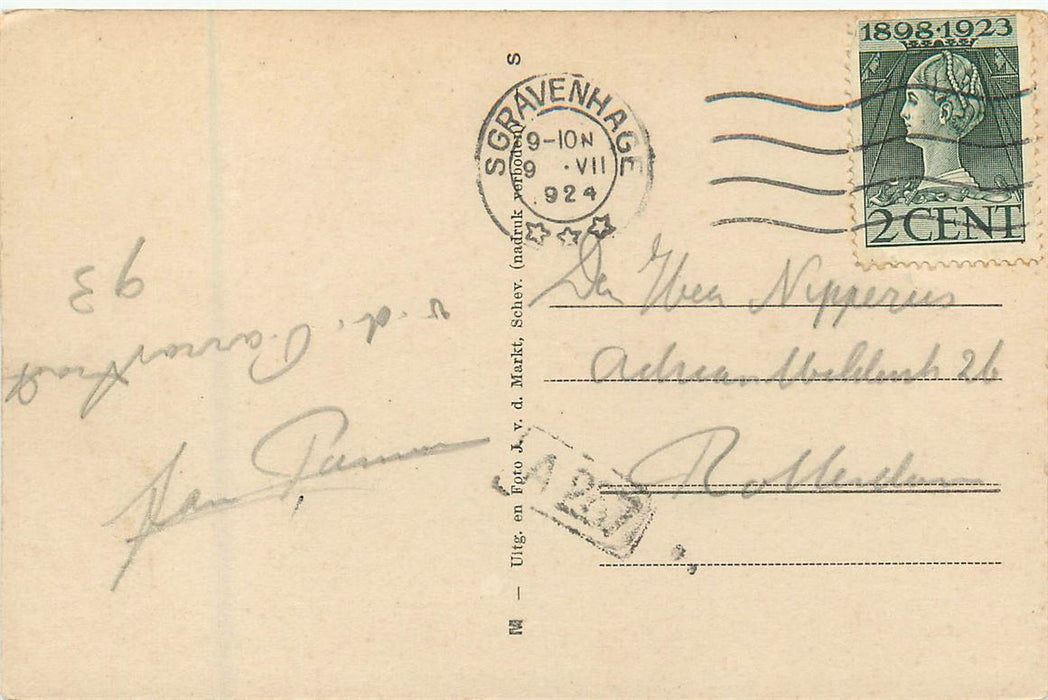 1898·1923
2 CENT
S GRAVENHAGE
9-10 N
9 ·VII
924
S
M — Uitg. en Foto J. v. d. Markt, Schev. (nadruk verboden)
Den Heer Nipperus
Adriaan 26
Rotterdam
A 267
v. d.
93
Jan